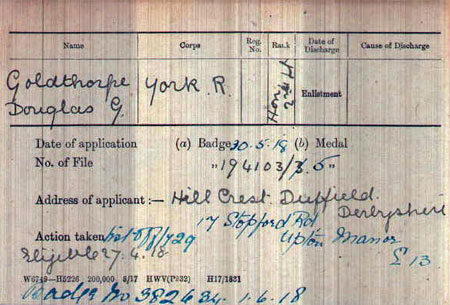 Name Corps Reg. No. Rank Date of Discharge Cause of Discharge
Goldthorpe York. R. Enlistment
Douglas G.
Date of application (a) Badge 30.5.18 (b) Medal
No. of File "194103/ 5"
Address of applicant :— Hill Crest Duffield.
Derbyshire
17 Stopford Rd
Action taken Upton Manor
Eligible 27.4.18 £13
W6749—H5226 200,000 8/17 HWV(P932) H17/1831
Badge No 382634. 1.6.18